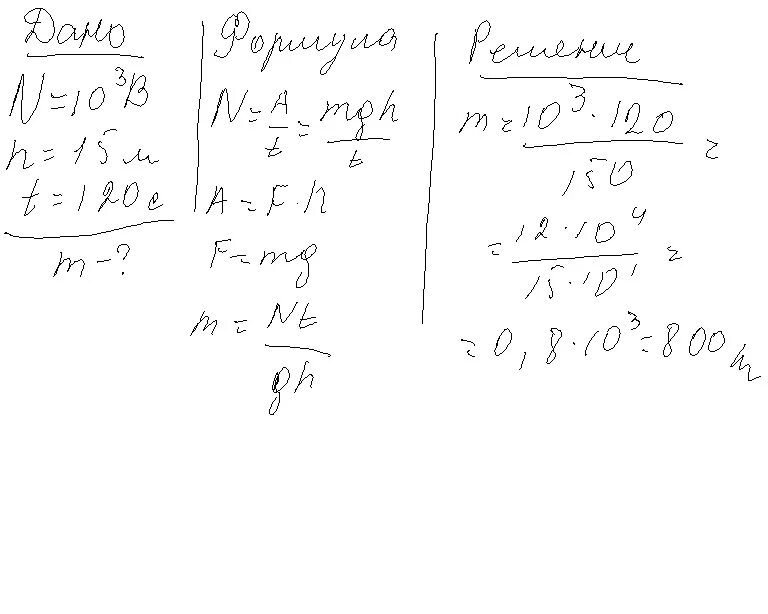 Дано
N=10³В
h=15м
t=120с
m-?
Формула
N=A/t=mgh/t
A=F·h
F=mg
m=Nt/gh
Решение
m=10³·120/150=
=12·10⁴/15·10¹=
=0,8·10³=800m